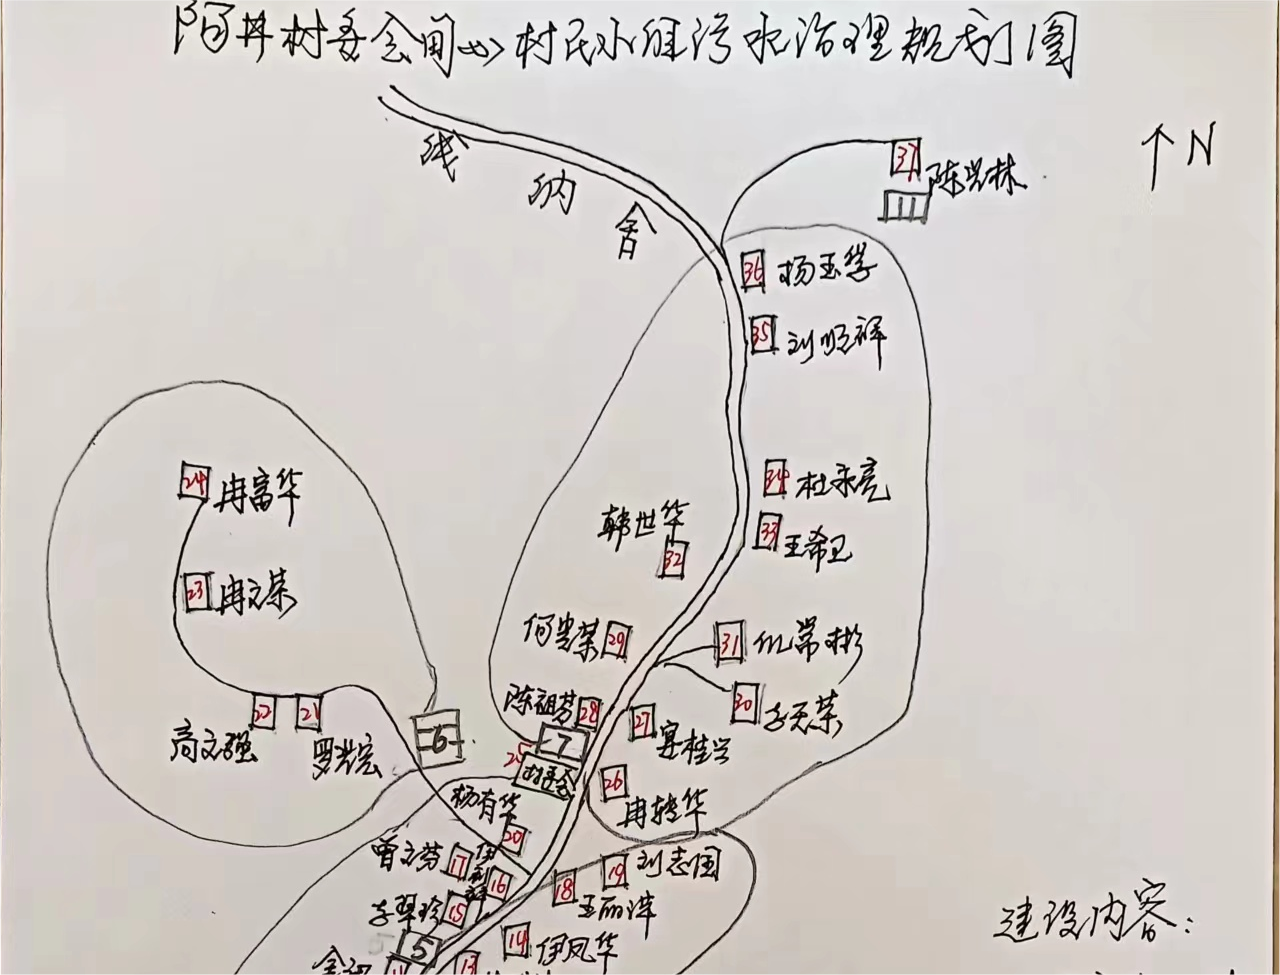 陌井村委会周边村民小组污水治理规划图
线
纳
舍
N
37
陈兴林
36 杨玉学
35 刘顺祥
24 冉富华
34 杜永亮
韩世华
32
33 王希卫
23 冉文荣
何贵荣 29
31 仇常彬
陈祖芬 28
30 李天荣
22 21
27 宴桂兴
高文强
罗兴宏
6
7
25 村委会
26
冉转华
杨有华
20
曾文芬 17
16
19 刘志国
18 王丽萍
李翠珍 15
14 伊凤华
5
13
建设内容: